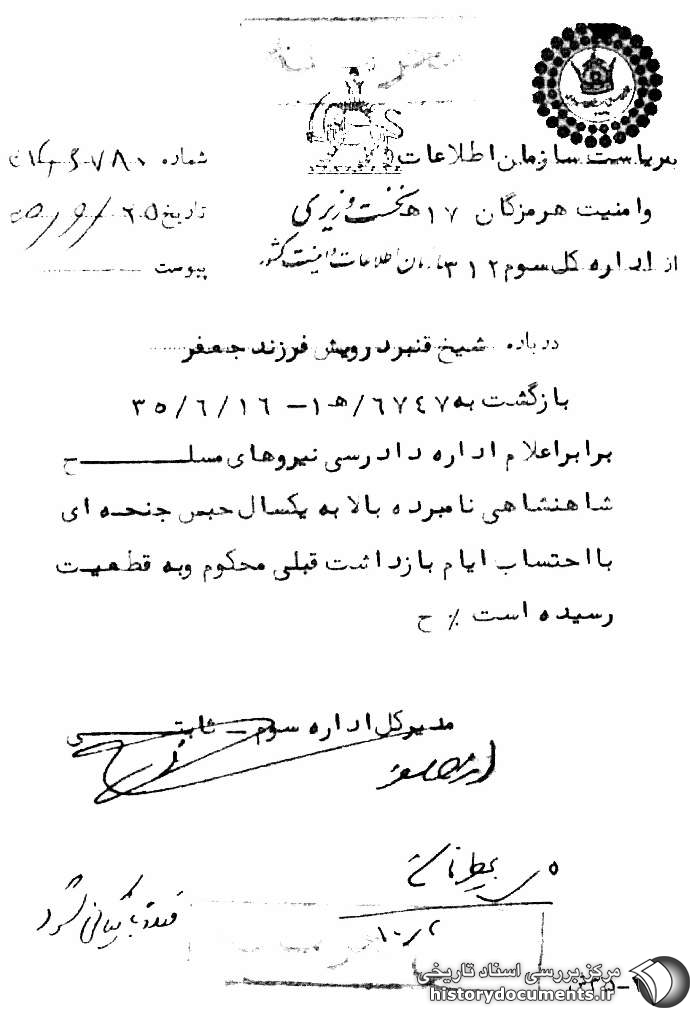 بریاست سازمان اطلاعات
شماره
وامنیت هرمزگان ۱۷ه
نخست وزیری
تاریخ
از اداره کل سوم ۳۱۲
سازمان اطلاعات و امنیت کشور
پیوست
درباره شیخ قنبردرویش فرزند جعفر
بازگشت به ۶۷۴۷/ه۱ - ۳۵/۶/۱۶
برابراعلام اداره دادرسی نیروهای مسلح
شاهنشاهی نامبرده بالا به یکسال حبس جنحه ای
بااحتساب ایام بازداشت قبلی محکوم وبه قطعیت
رسیده است ٪ ح
مدیرکل اداره سوم - ثابتی
۱۰/۲
مرکز بررسی اسناد تاریخی
historydocuments.ir